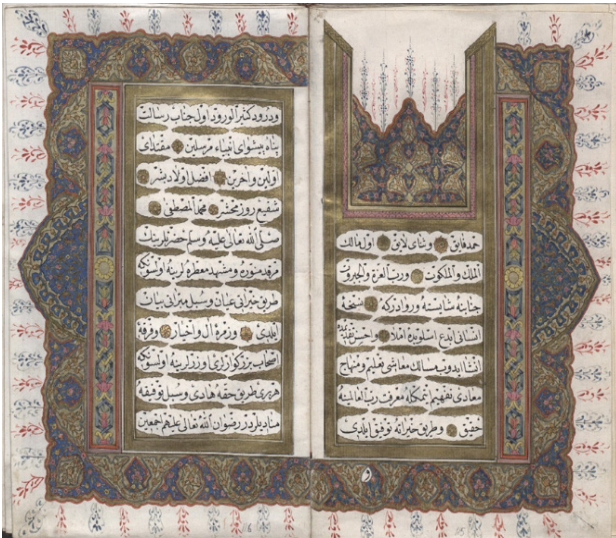 حمد فايق و ثناى لايق اول مالك
الملك والملكوت و رب العزة والجبروت
جنابنه شايسته و روادركه نسخهٔ
انسانى ابدع اسلوبده املا و احسن
انشا ايدوب مسالك معاشى تعليم و منهاج
معادى تفهيم ايتمكله معرفت رب العالمينه
حقيق و طريق خيراته توفيق ايلدى
و درود كثير الورود اول جناب رسالت
پناه پيشواى انبياء مرسلين مقتداى
اولين و آخرين افضل اولاد بشر
شفيع روز محشر محمد المصطفى
صلى الله تعالى عليه وسلم حضرتلرينك
مرقد منوره و مشهد معطره لرينه اولسونكه
طريق جنانى عيان و سبل ميزانى بيان
ايلدى و زمرهٔ آل و اخيار و فرقهٔ
اصحاب بزركوارلرى روزارينه اولسونكه
هر برى طريق حقه هادى و سبل توفيقه
منادیلردر رضوان الله تعالى عليهم اجمعين